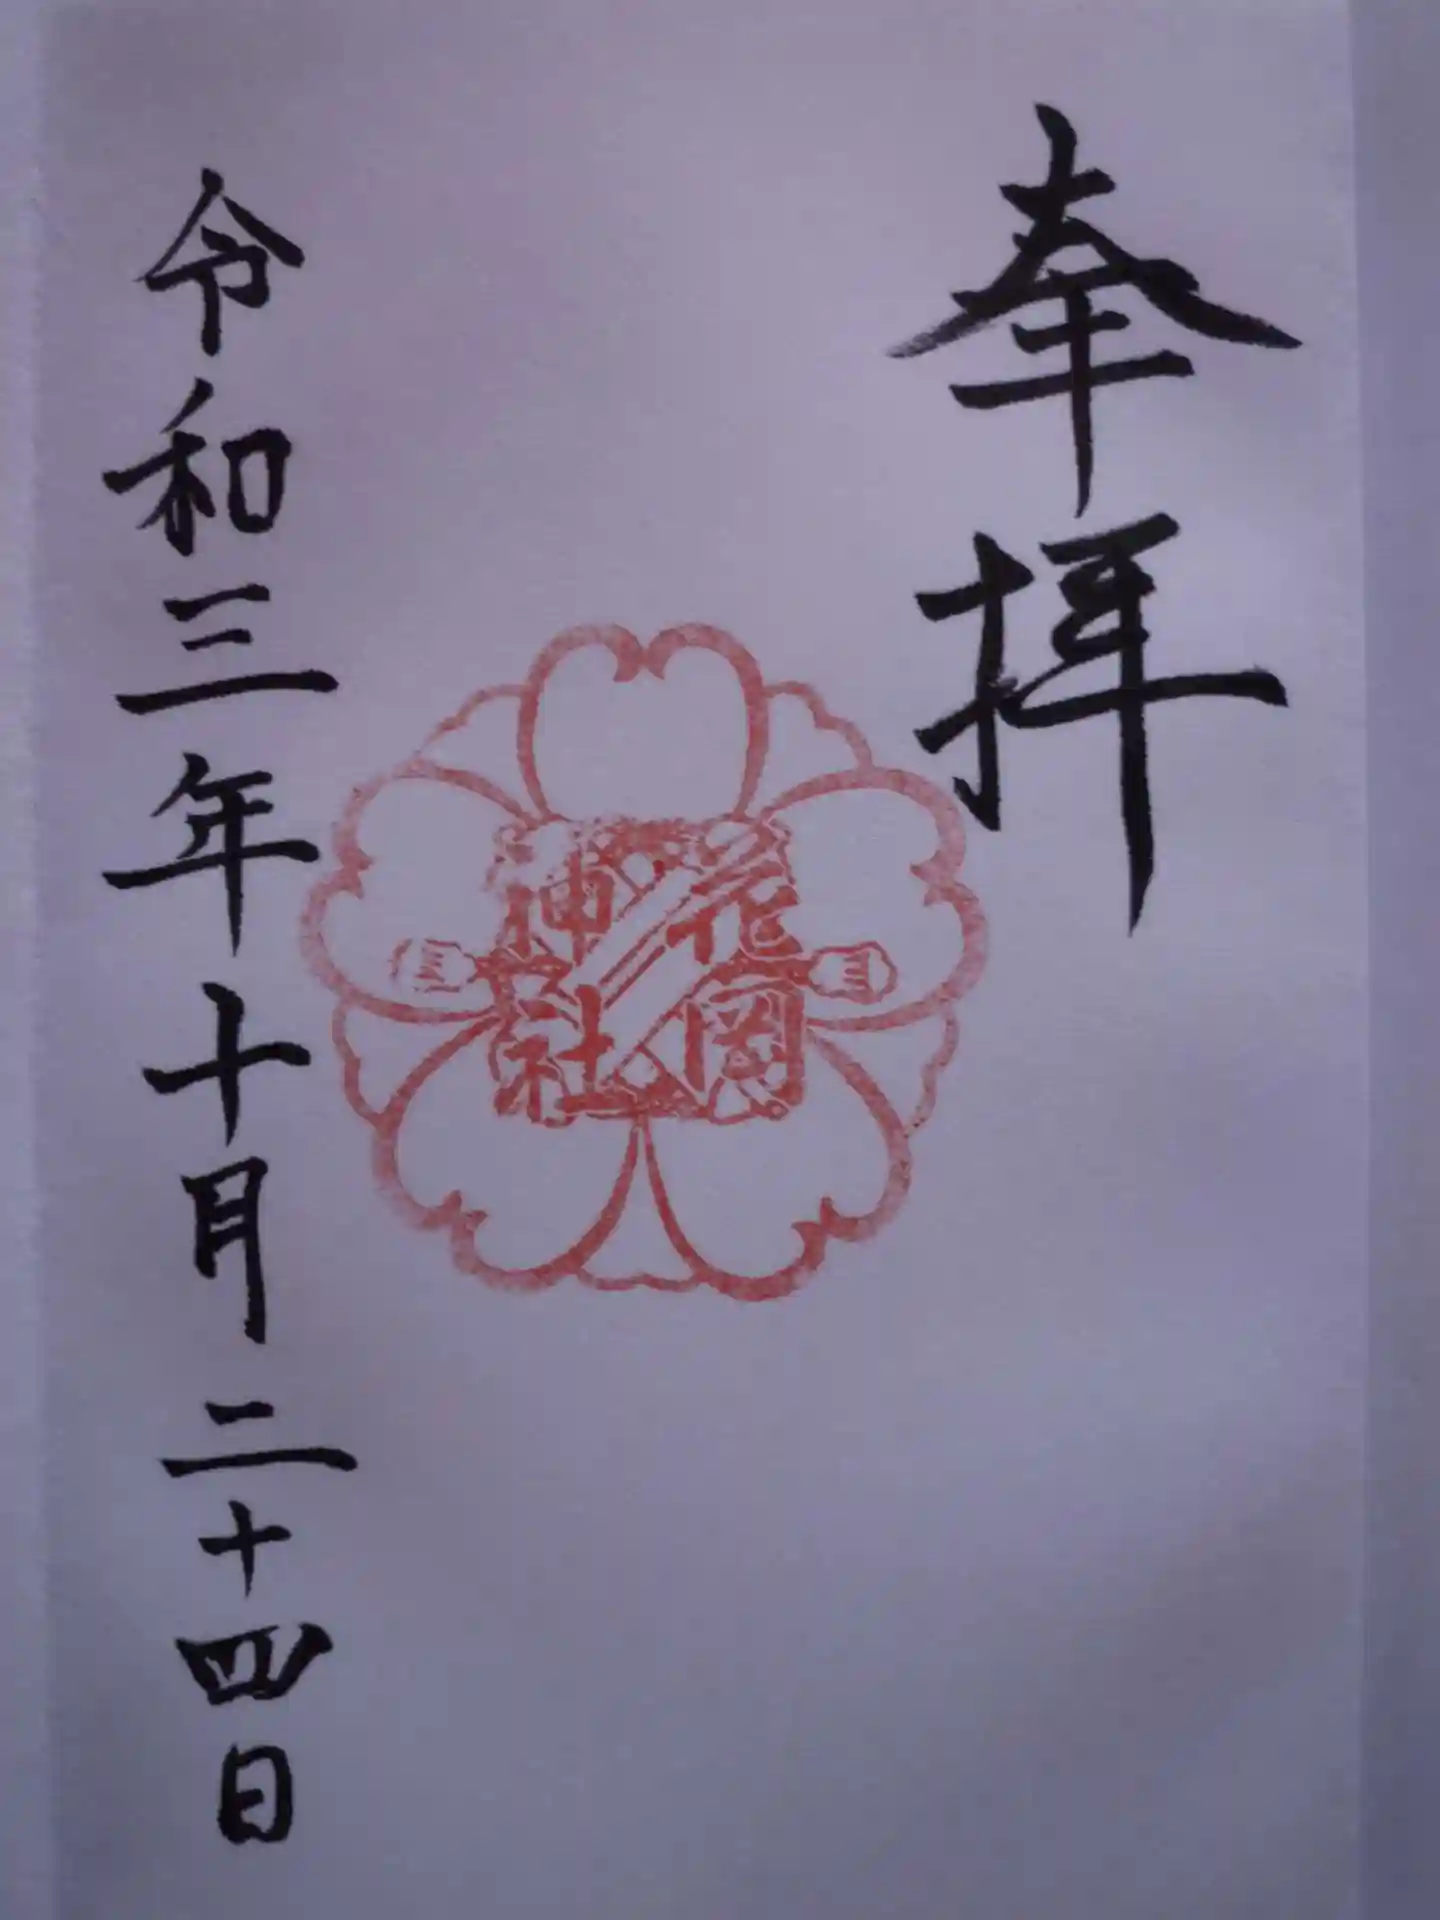 奉拝
花岡
神社
令和三年十月二十四日